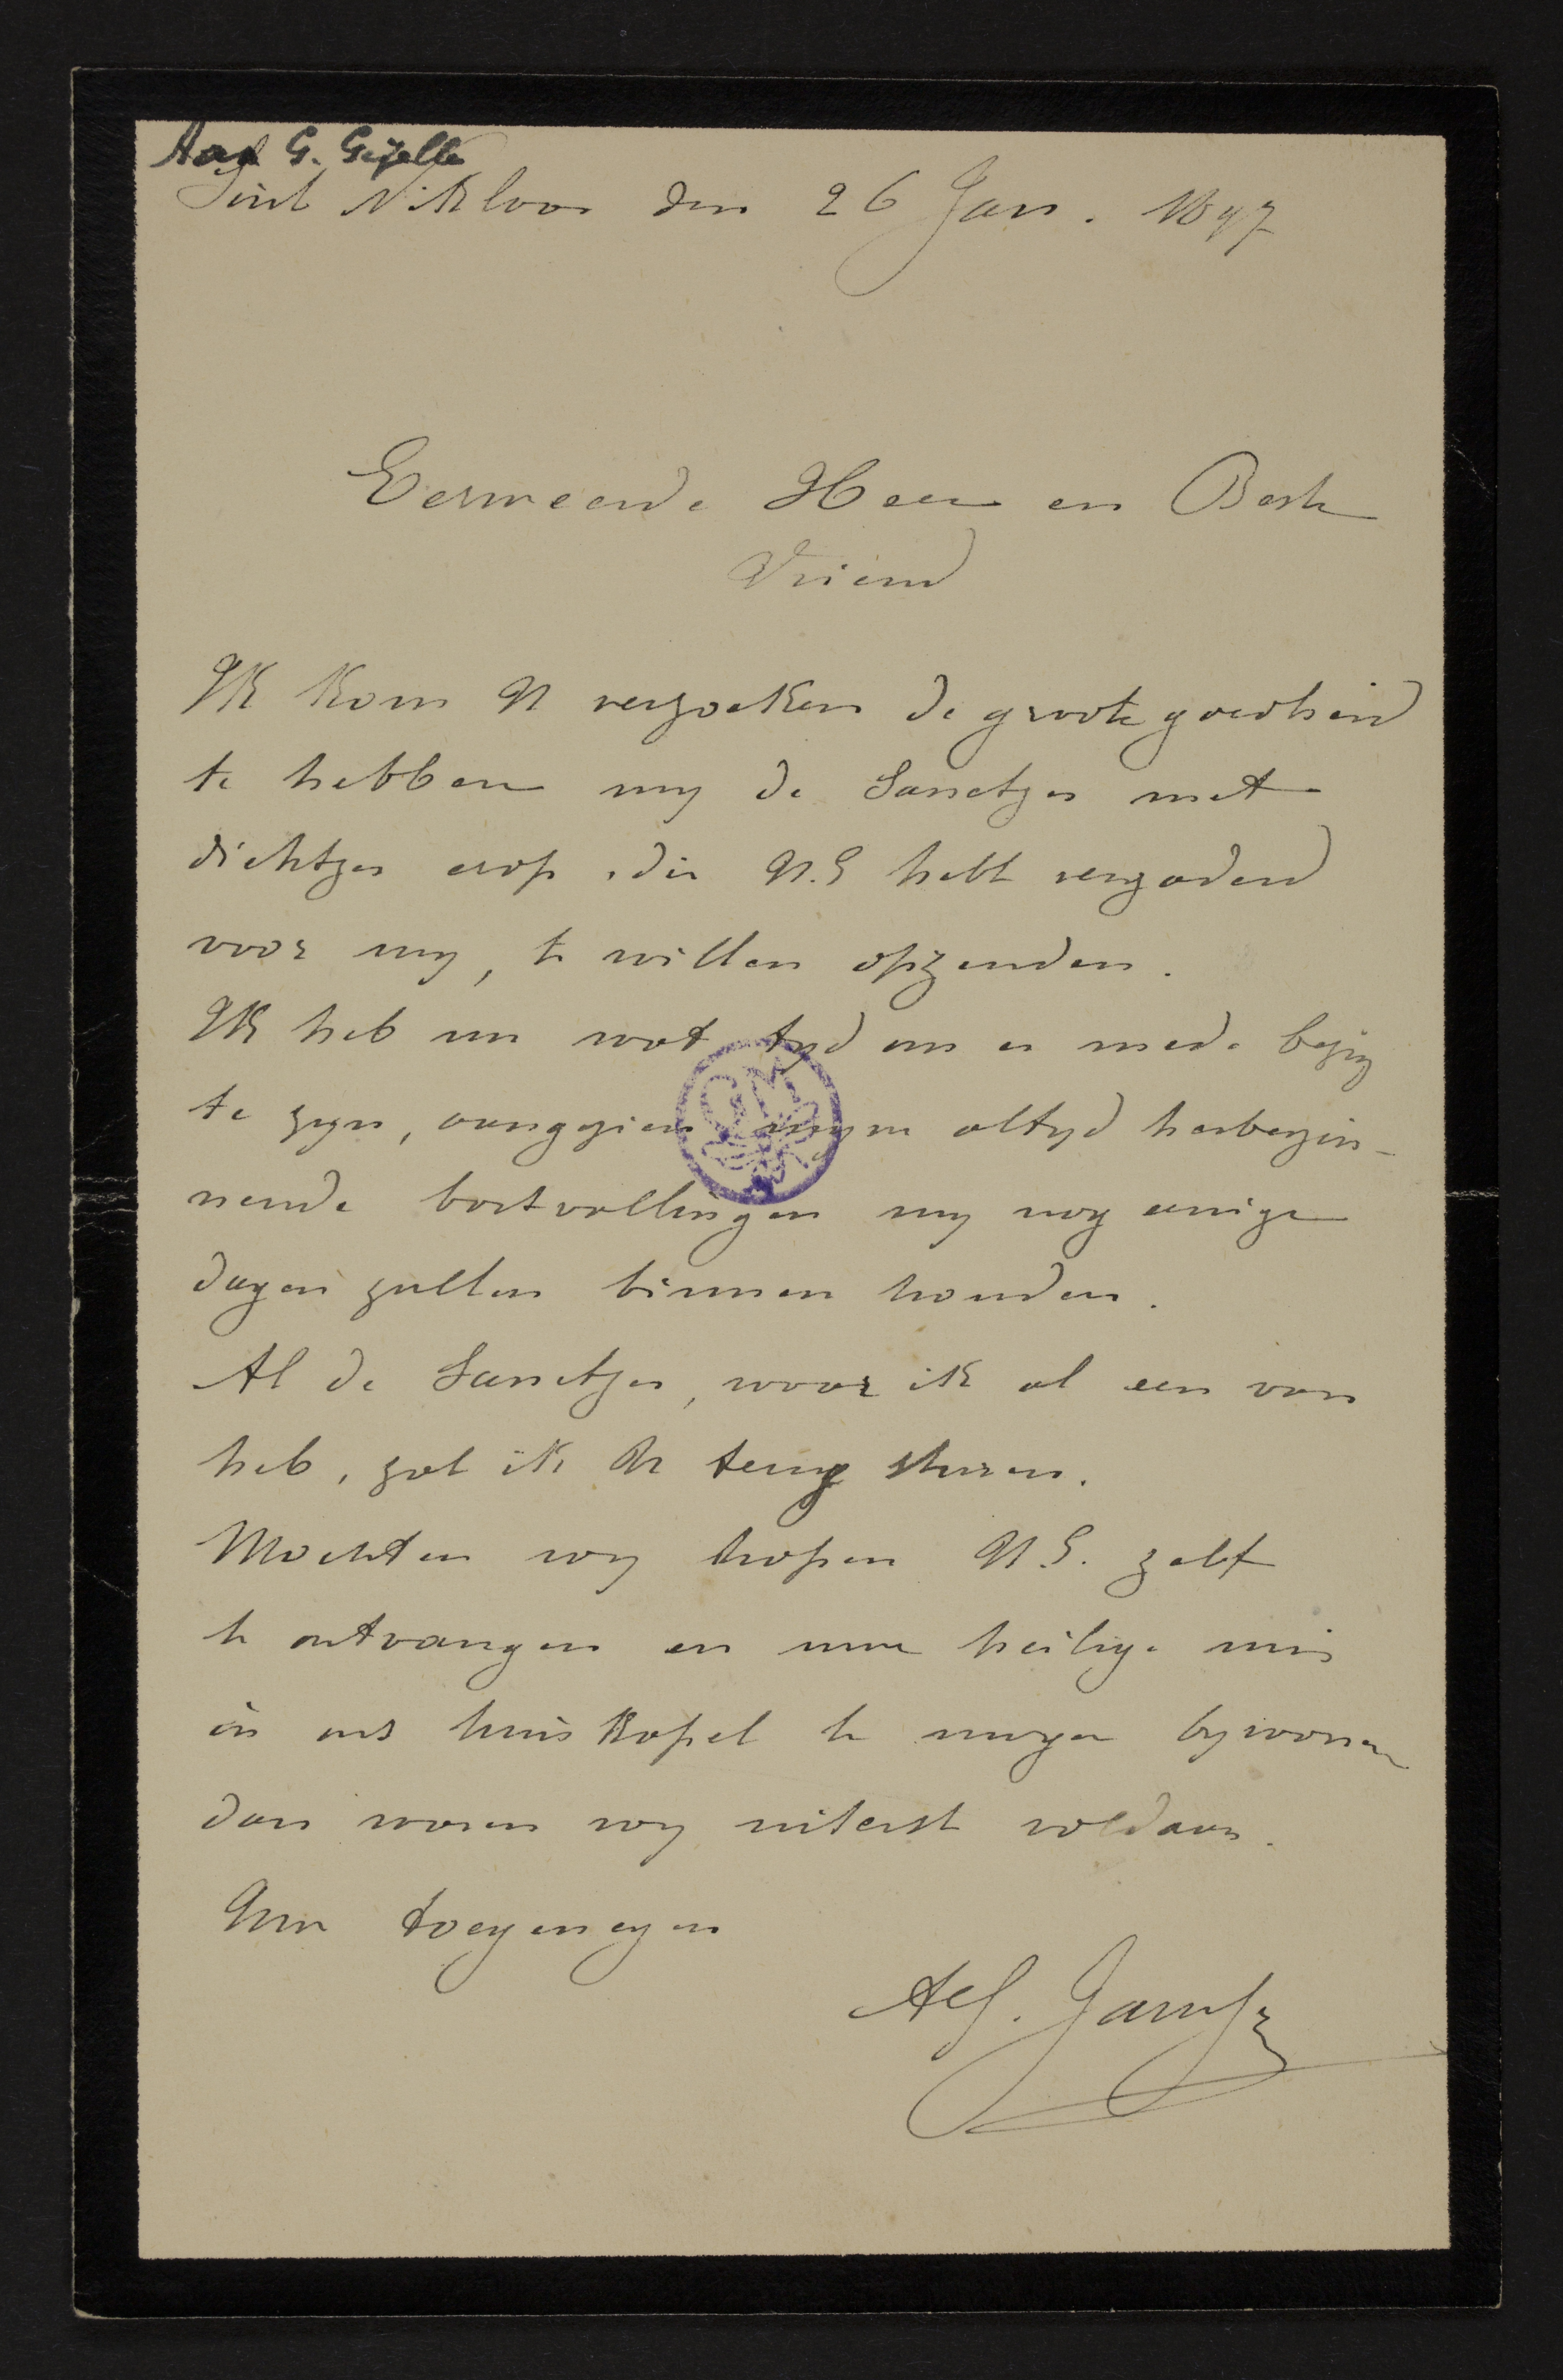 Aan G. Gezelle
Sint Niklaas den 26 Jan. 1897
Eerweerde Heer en Beste
Vriend
Ik kom U verzoeken de groote goedheid
te hebben my de Sanctjes met
dichtjes erop, die U.E hebt vergaderd
voor my, te willen opzenden.
Ik heb nu wat tyd om er mede bezig
te zyn, aangezien myne altyd herbegin-
nende bortvallingen my nog eenige
dagen zullen binnen houden.
Al de Sanctjes, waar ik al een van
heb, zal ik U terug sturen.
Mochten wy hopen U.E. zelf
te ontvangen en uwe heilige mis
in ons huiskapel te mogen bywonen
dan waren wy uiterst voldaan.
Uw toegenegen
Alf. Janssens